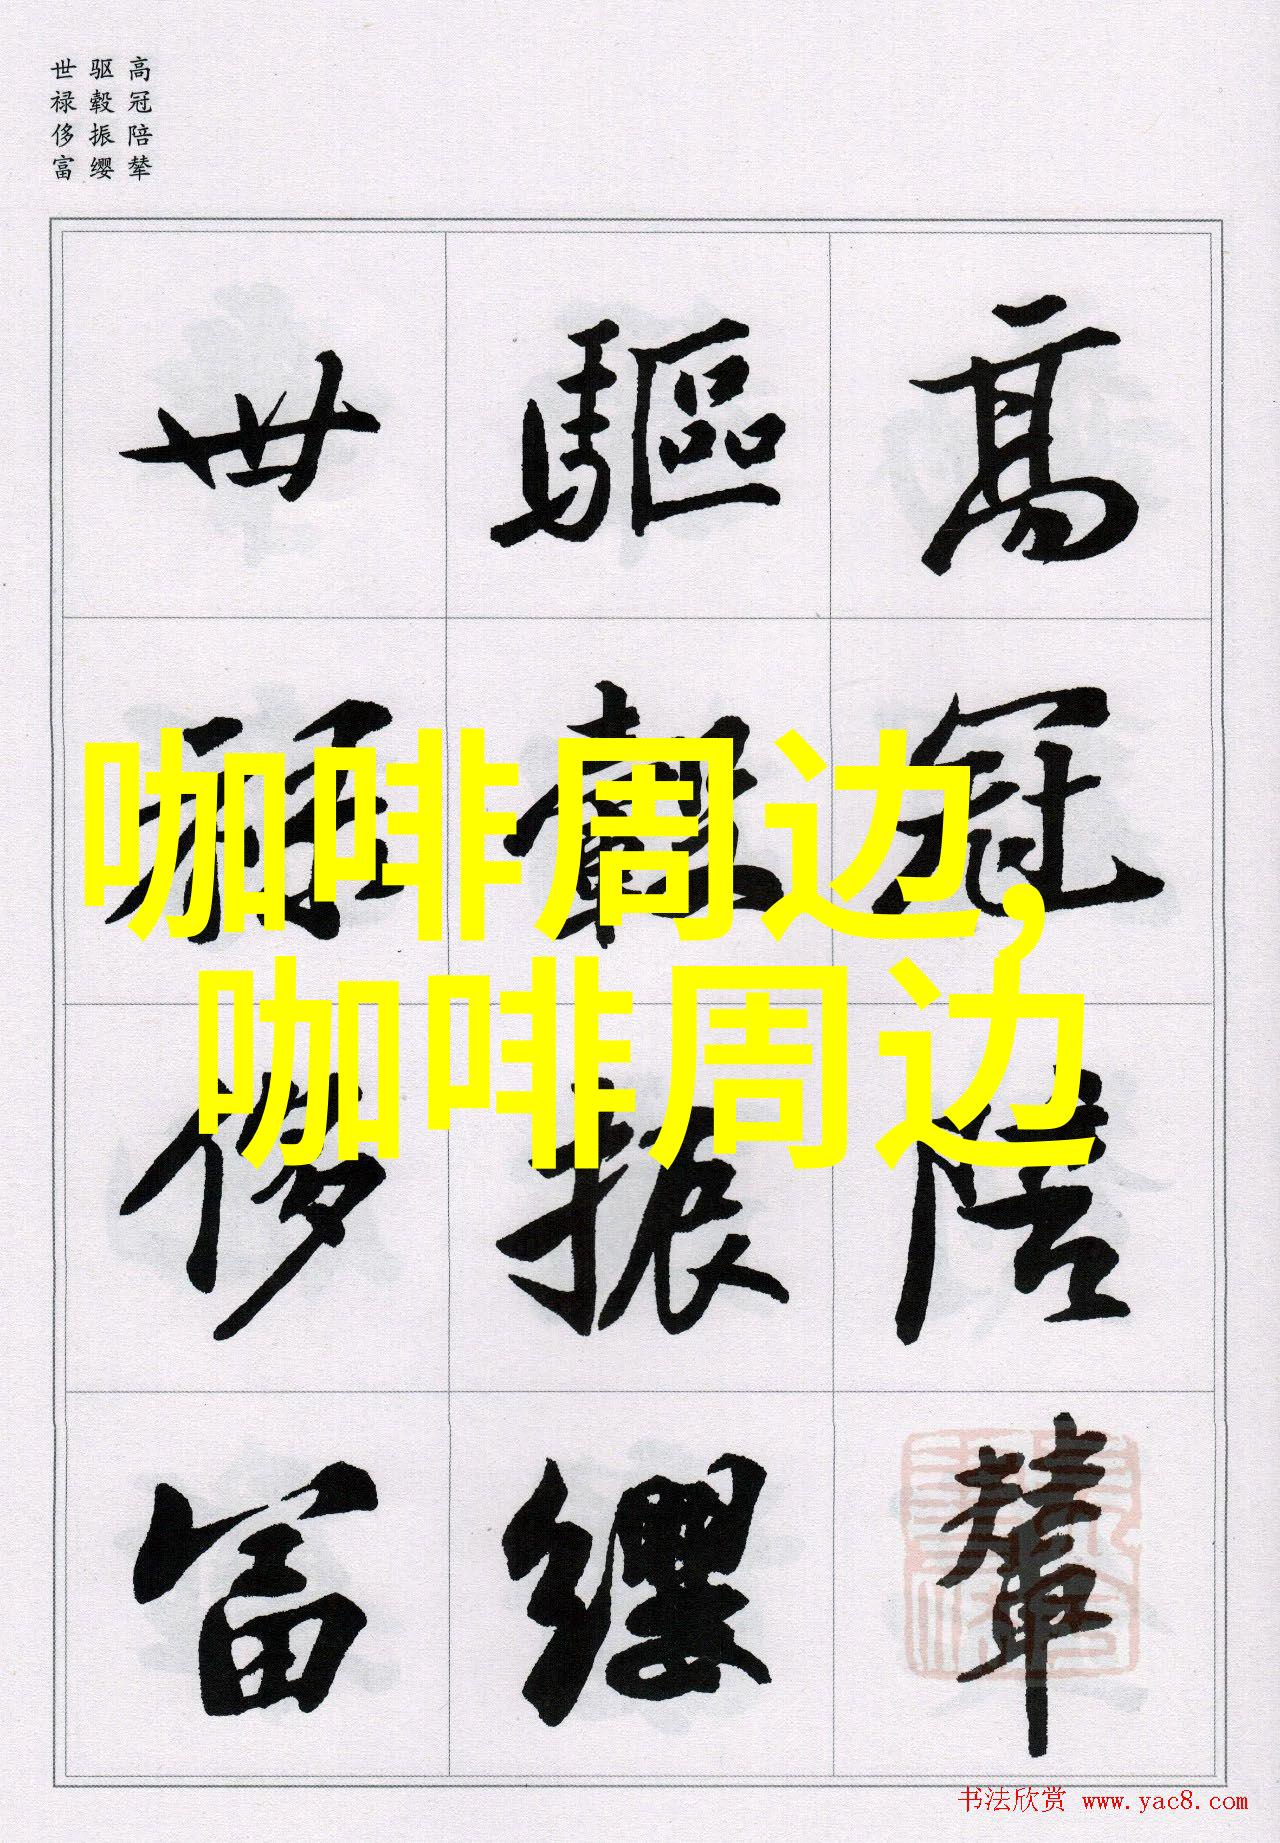 高冠陪辇
驱毂振缨
世禄侈富
高冠陪輦
驅轂振纓
世祿侈富
咖啡周边,
咖啡周边
书法欣赏 www.yac8.com